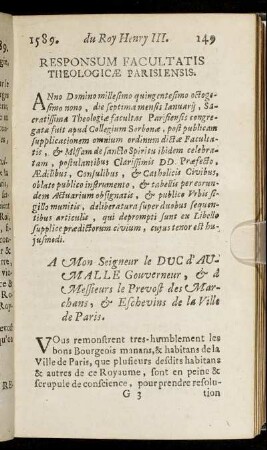 1589. du Roy Henry III. 149
RESPONSUM FACULTATIS
THEOLOGICÆ PARISIENSIS.
Anno Domino millesimo quingentesimo octoge-
simo nono, die septima mensis Ianuarij, Sa-
cratissima Theologiæ facultas Parisiensis congre-
gata fuit apud Collegium Sorbonæ, post publicam
supplicationem omnium ordinum dictæ Faculta-
tis, & Missam de sancto Spiritu ibidem celebra-
tam, postulantibus Clarissimis DD. Præfecto,
Ædilibus, Consulibus, & Catholicis Civibus,
oblato publico instrumento, & tabellis per eorun-
dem Actuarium obsignatis, & publico Urbis si-
gillo munitis, deliberatura super duobus sequen-
tibus articulis, qui deprompti sunt ex Libello
supplice prædictorum civium, cujus tenor est hu-
jusmodi.
A Mon Seigneur le DUC d'AU-
MALLE Gouverneur, & à
Messieurs le Prevost des Mar-
chans, & Eschevins de la Ville
de Paris.
VOus remonstrent tres-humblement les
bons Bourgeois manans, & habitans de la
Ville de Paris, que plusieurs desdits habitans
& autres de ce Royaume, sont en peine &
scrupule de conscience, pour prendre resolu-
G 3 tion